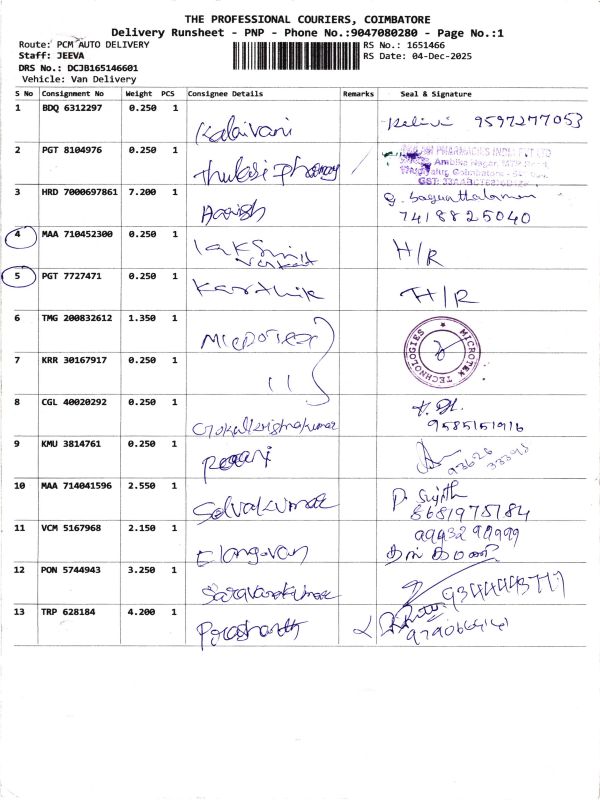 THE PROFESSIONAL COURIERS, COIMBATORE
Delivery Runsheet - PNP - Phone No.:9047080280 - Page No.:1
Route: PCM AUTO DELIVERY
Staff: JEEVA
DRS No.: DCJB165146601
Vehicle: Van Delivery
RS No.: 1651466
RS Date: 04-Dec-2025
S No Consignment No Weight PCS Consignee Details Remarks Seal & Signature
1 BDQ 6312297 0.250 1 Kalaivani 9597277053
2 PGT 8104976 0.250 1 Thulasi Pharmacy PHARMACIES INDIA PVT LTD
Ambika Nagar, MTP Road
3 HRD 7000697861 7.200 1 Harish
7418825040
4 MAA 710452300 0.250 1 Lakshmi H/R
5 PGT 7727471 0.250 1 Karthik H/R
6 TMG 200832612 1.350 1 Microtek MICROTEK TECHNOLOGIES
7 KRR 30167917 0.250 1 11
8 CGL 40020292 0.250 1 Gokulkrishnakumar
9585151916
9 KMU 3814761 0.250 1 93626
33395
10 MAA 714041596 2.550 1 Selvakumar P. Sujith
8681975184
11 VCM 5167968 2.150 1 Elangovan 9943290999
12 PON 5744943 3.250 1 Saravanakumar
13 TRP 628184 4.200 1 Prashanth